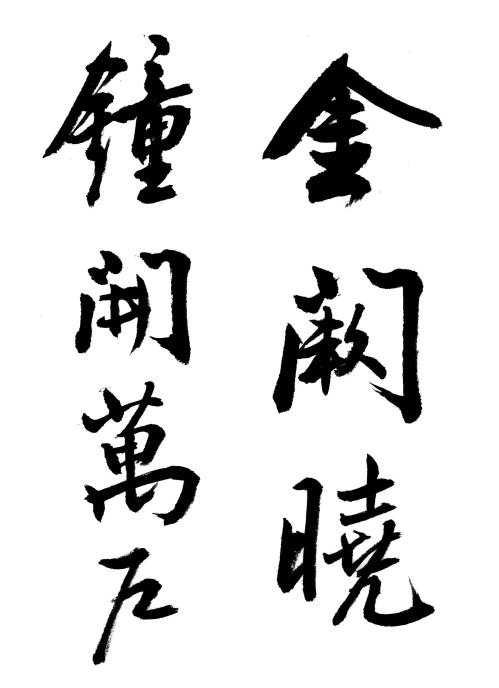 金闕曉
鐘開萬戶